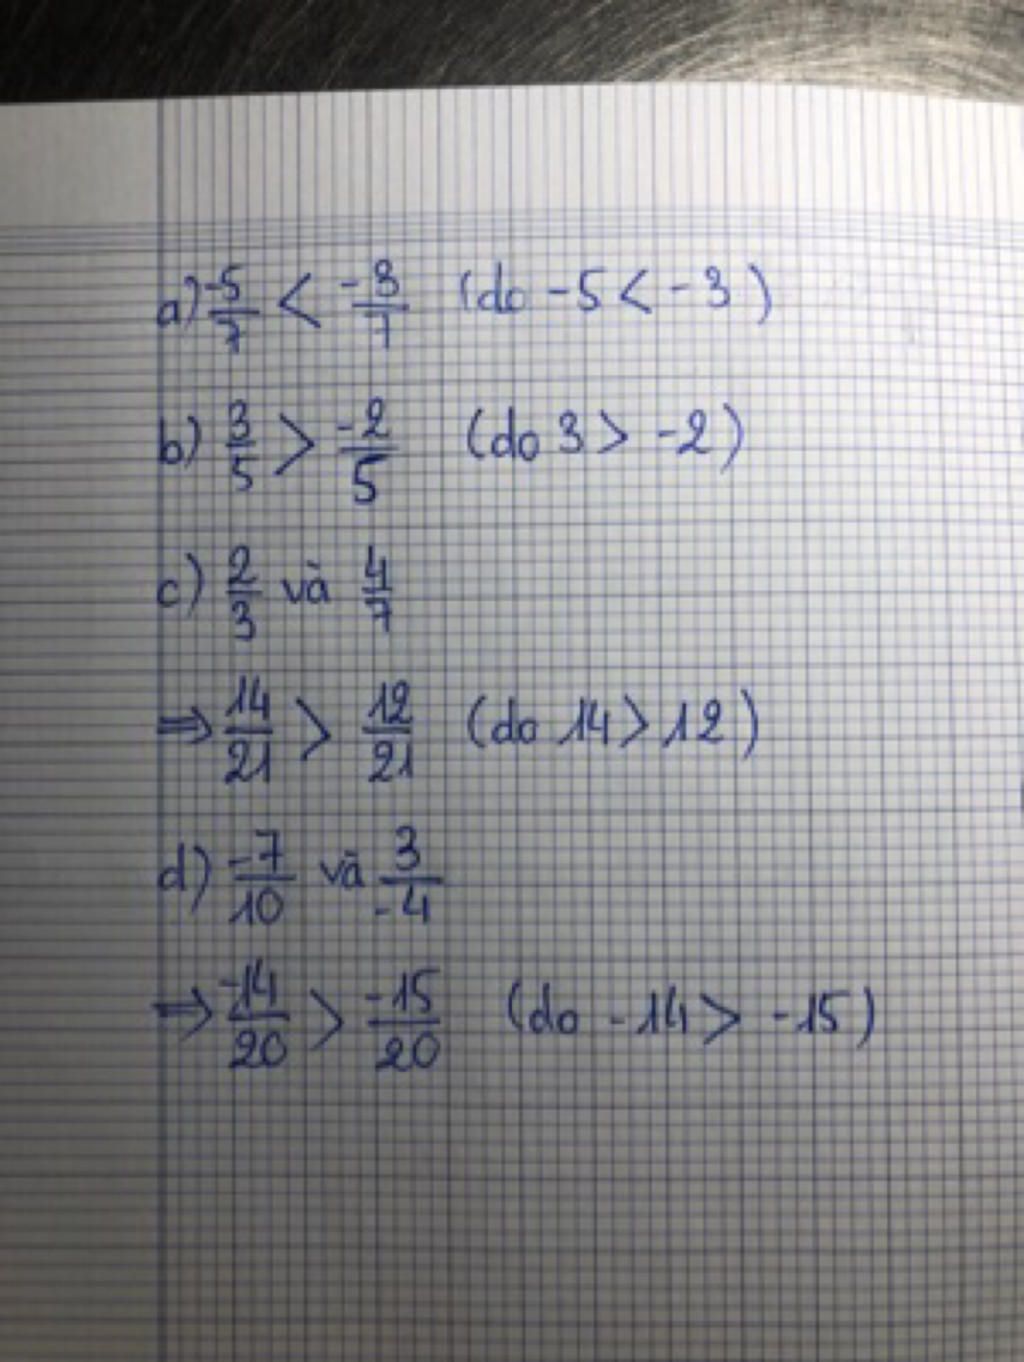 a) -5/7 < -3/7 (do -5 < -3)
b) 3/5 > -2/5 (do 3 > -2)
c) 2/3 và 4/7
⇒ 14/21 > 12/21 (do 14 > 12)
d) -7/10 và 3/-4
⇒ -14/20 > -15/20 (do -14 > -15)